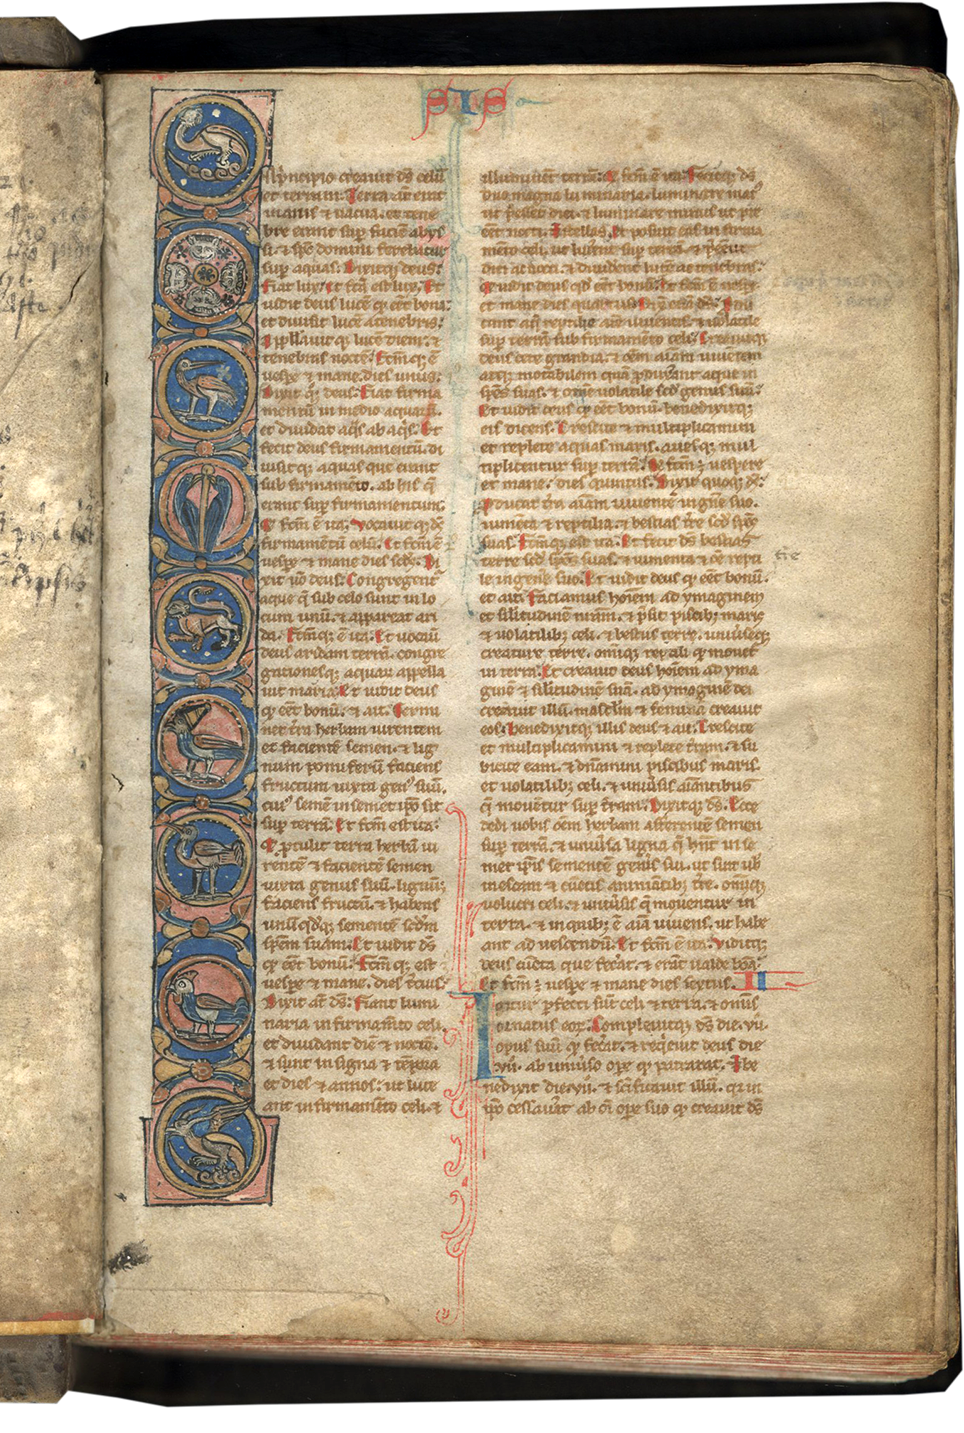 SIS
N pͥncipio creauit ds̄ celū
et terram. Terra aūt erat
inanis et uacua. et tene
bre erant sup̄ faciem abys
si. et sp̄s domini ferebatur
sup̄ aquas. Dixitqꝫ deus.
Fiat lux. et fc̄a est lux. Et
uidit deus lucē qꝫ eēt bona.
et diuisit lucē a tenebris.
Appllauit qꝫ lucē diem. et
tenebras noctē. Fc̄m qꝫ ē
uesp̄e et mane. dies unus.
Dixit qꝫ deus. Fiat firma
mentū in medio aquarū.
et diuidat aq̄s ab aq̄s. Et
fecit deus firmamentū. di
uisitqꝫ aquas que erant
sub firmamēto. ab his q̄
erant sup̄ firmamentum.
Et fc̄m ē ita. Vocauit qꝫ ds̄
firmamētū celū. Et fc̄m ē
uesp̄e et mane dies scd̄s. Di
xit u̇o deus. Congregent᷑
aque q̄ sub celo sunt in lo
cum unū. et appareat ari
da. Fc̄mqꝫ ē ita. Et uocauit
deus aridam terrā. congre
gationesqꝫ aquarꝫ appella
uit maria. Et uidit deus
qꝫ eēt bonū. et ait. Germi
net t̄ra herbam uirentem
et faciente semen. et lig
num pomiferū faciens
fructum iuxta genꝰ suū.
cuiꝰ semē in semet ip̄o sit
sup̄ terrā. Et fc̄m est ita.
Et p̄tulit terra herbā ui
rentē et facientē semen
iuxta genus suū. lignūqꝫ
faciens fructū. et habens
unūqd̄qꝫ sementē scd̄m
sp̄em suam. Et uidit ds̄
qꝫ eēt bonū. Fc̄m qꝫ est
uesp̄e et mane. dies t̄cius.
Dixit aūt ds̄. Fiant lumi
naria in firmam̄to celi.
et diuidant diē et noctē.
et sint in signa et tēpora
et dies et annos. ut luce
ant in firmam̄to celi. et
illuminēt terrā. Et fc̄m ē ita. Fecitqꝫ ds̄
duo magna luminaria. luminare maiꝰ
ut p̄esset diei. et luminare minus ut p̄e
eēt nocti. Et stellas. Et posuit eas in firma
mēto celi. ut lucerēt sup̄ terrā. et p̄eēnt
diei ac nocti. et diuiderēt lucē ac tenebras.
Et uidit deus qd̄ eēt bonū. Et fc̄m ē uesp̄e
et mane dies quartus. Dixit etiā ds̄. Produ
cant aq̄ reptile aīe uiuentis. et uolatile
sup̄ terrā sub firmamēto celi. Creauitqꝫ
deus cete grandia. et oēm aīam uiuētem
atqꝫ motabilem quā p̄duxerāt aque in
sp̄es suas. et omē uolatile scd̄ genus suū.
Et uidit deus qꝫ eēt bonū. benedixitqꝫ
eis dicens. Crescite et multiplicamini
et replete aquas maris. auesqꝫ mul
tiplicentur sup̄ terrā. Et fc̄m ē uespere
et mane. dies quintus. Dixit quoqꝫ ds̄.
Producat t̄ra aīam uiuentē in genē suo.
iumēta et reptilia. et bestias t̄re scd̄ sp̄es
suas. Fc̄mqꝫ est ita. Et fecit ds̄ bestias
terre scd̄ sp̄es suas. et iumenta et oē repti
le in genē suo. Et uidit deus qꝫ eēt bonū.
et ait. Faciamus hoīem ad ymaginem
et silitudinē nr̄am. et p̄sit piscibꝫ maris
et uolatilibꝫ celi. et bestiis terre. uniūseqꝫ
creature terre. omiqꝫ reptili qꝫ mouet᷑
in terra. Et creauit deus hoīem ad yma
ginē et silitudinē suā. ad ymaginē dei
creauit illū. masclm̄ et feminā creauit
eos. Benedixitqꝫ illis deus et ait. Crescite
et multiplicamini et replete t̄ram. et su
bicite eam. et dn̄amini piscibus maris.
et uolatilibꝫ celi. et uniūsis aīantibus
q̄ mouent᷑ sup̄ t̄ram. Dixitqꝫ ds̄. Ecce
dedi uobis oēm herbam afferentē semen
sup̄ terrā. et uniūsa ligna q̄ hn̄t in se
met ip̄is sementē gen̄is sui. ut sint uob̄
in escam et cūctis animātibꝫ t̄re. omiqꝫ
uolucri celi. et uniūsis q̄ mouentur in
terra. et in quibꝫ ē aīa uiuens. ut habe
ant ad uescendū. Et fc̄m ē ita. Viditqꝫ
deus cūcta que fec̄at. et erāt ualde bōa.
Et fc̄m ē uesp̄e et mane dies sextus. II
Igitur p̄fecti sūt celi et terra. et omīs
ornatus eoꝝ. Compleuitqꝫ ds̄ die .vii.
opus suū qꝫ fec̄at. et req̄euit deus die
.vii. ab uniūso ope qꝫ patrarat. Et be
nedixit diei .vii. et sc̄ificauit illū. qꝛ in
ip̄o cessau̇at ab oī ope suo qꝫ creauit ds̄